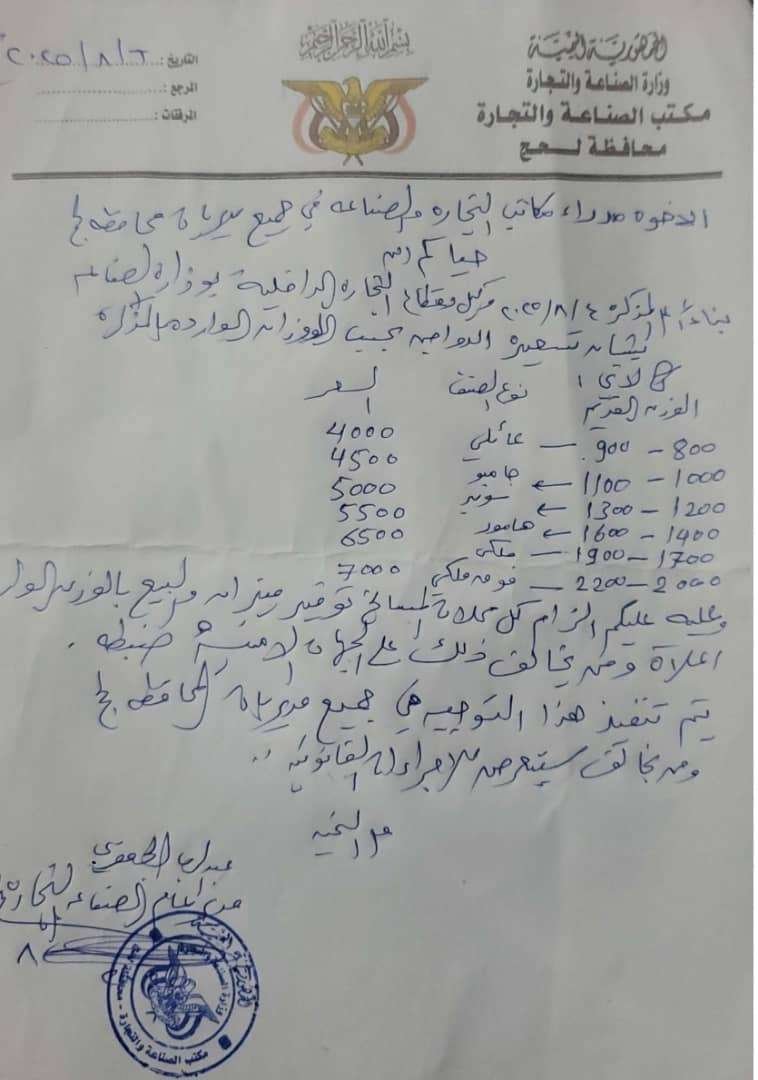 بسم الله الرحمن الرحيم
الجمهورية اليمنية
وزارة الصناعة والتجارة
مكتب الصناعة والتجارة
محافظة لحج
التاريخ :
المرجع :
المرفقات :
الاخوه مدراء مكاتب التجاره والصناعه في جميع مديريات محافظة لحج
حياكم الله
بناءً المذكره ٤/٨/٢٠٢٥ قطاع التجاره الداخلية بوزارة الصناعه
بشان تسعيره الدواجن بحسب الاوزان الوارده بالمذكره
كالاتي :
الوزن القديم نوع الصنف السعر
800 - 900 - عائلي 4000
1000 - 1100 ← جامبو 4500
1200 - 1300 ← سوبر 5000
1400 - 1600 ← هامور 5500
1700 - 1900 - ملكي 6500
2000 - 2200 - فوق ملكي 7000
وعليه عليكم الزام كل محلات المسالخ توفير ميزان والبيع بالوزن
اعلاه ومن يخالف ذلك على الجهات الامنية ضبطه .
يتم تنفيذ هذا التوجيه في جميع مديريات المحافظه لحج
ومن يخالف سيتعرض للاجراءات القانونيه
مع التحيه
مدير عام الصناعه والتجارة
وزارة الصناعة والتجارة
مكتب الصناعة والتجارة